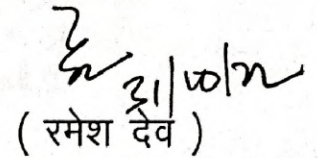 31/10/22
( रमेश देव )